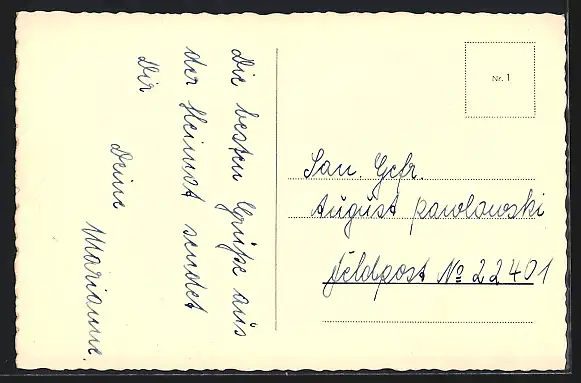 Die besten Grüße aus
der Heimat sendet
Dir
Deine
Marianne.
Nr. 1
San. Gefr.
August Pawlowski
Feldpost № 22401